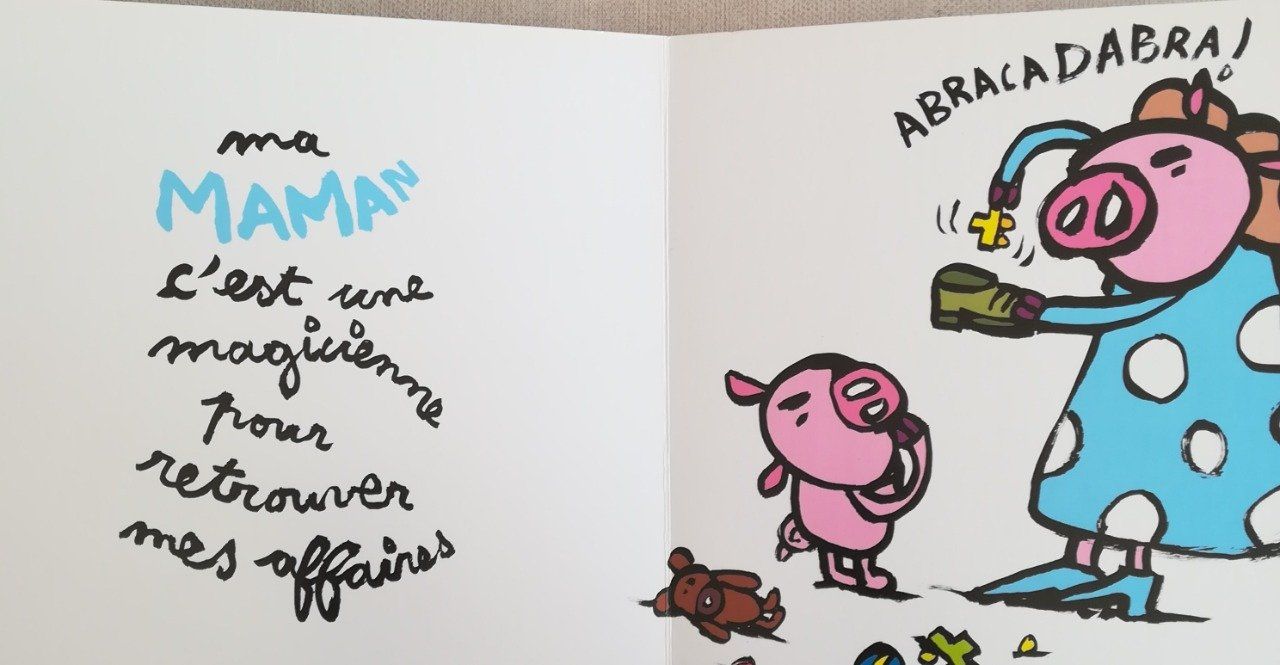 ma
MAMAN
c'est une
magicienne
pour
retrouver
mes affaires
ABRACADABRA!